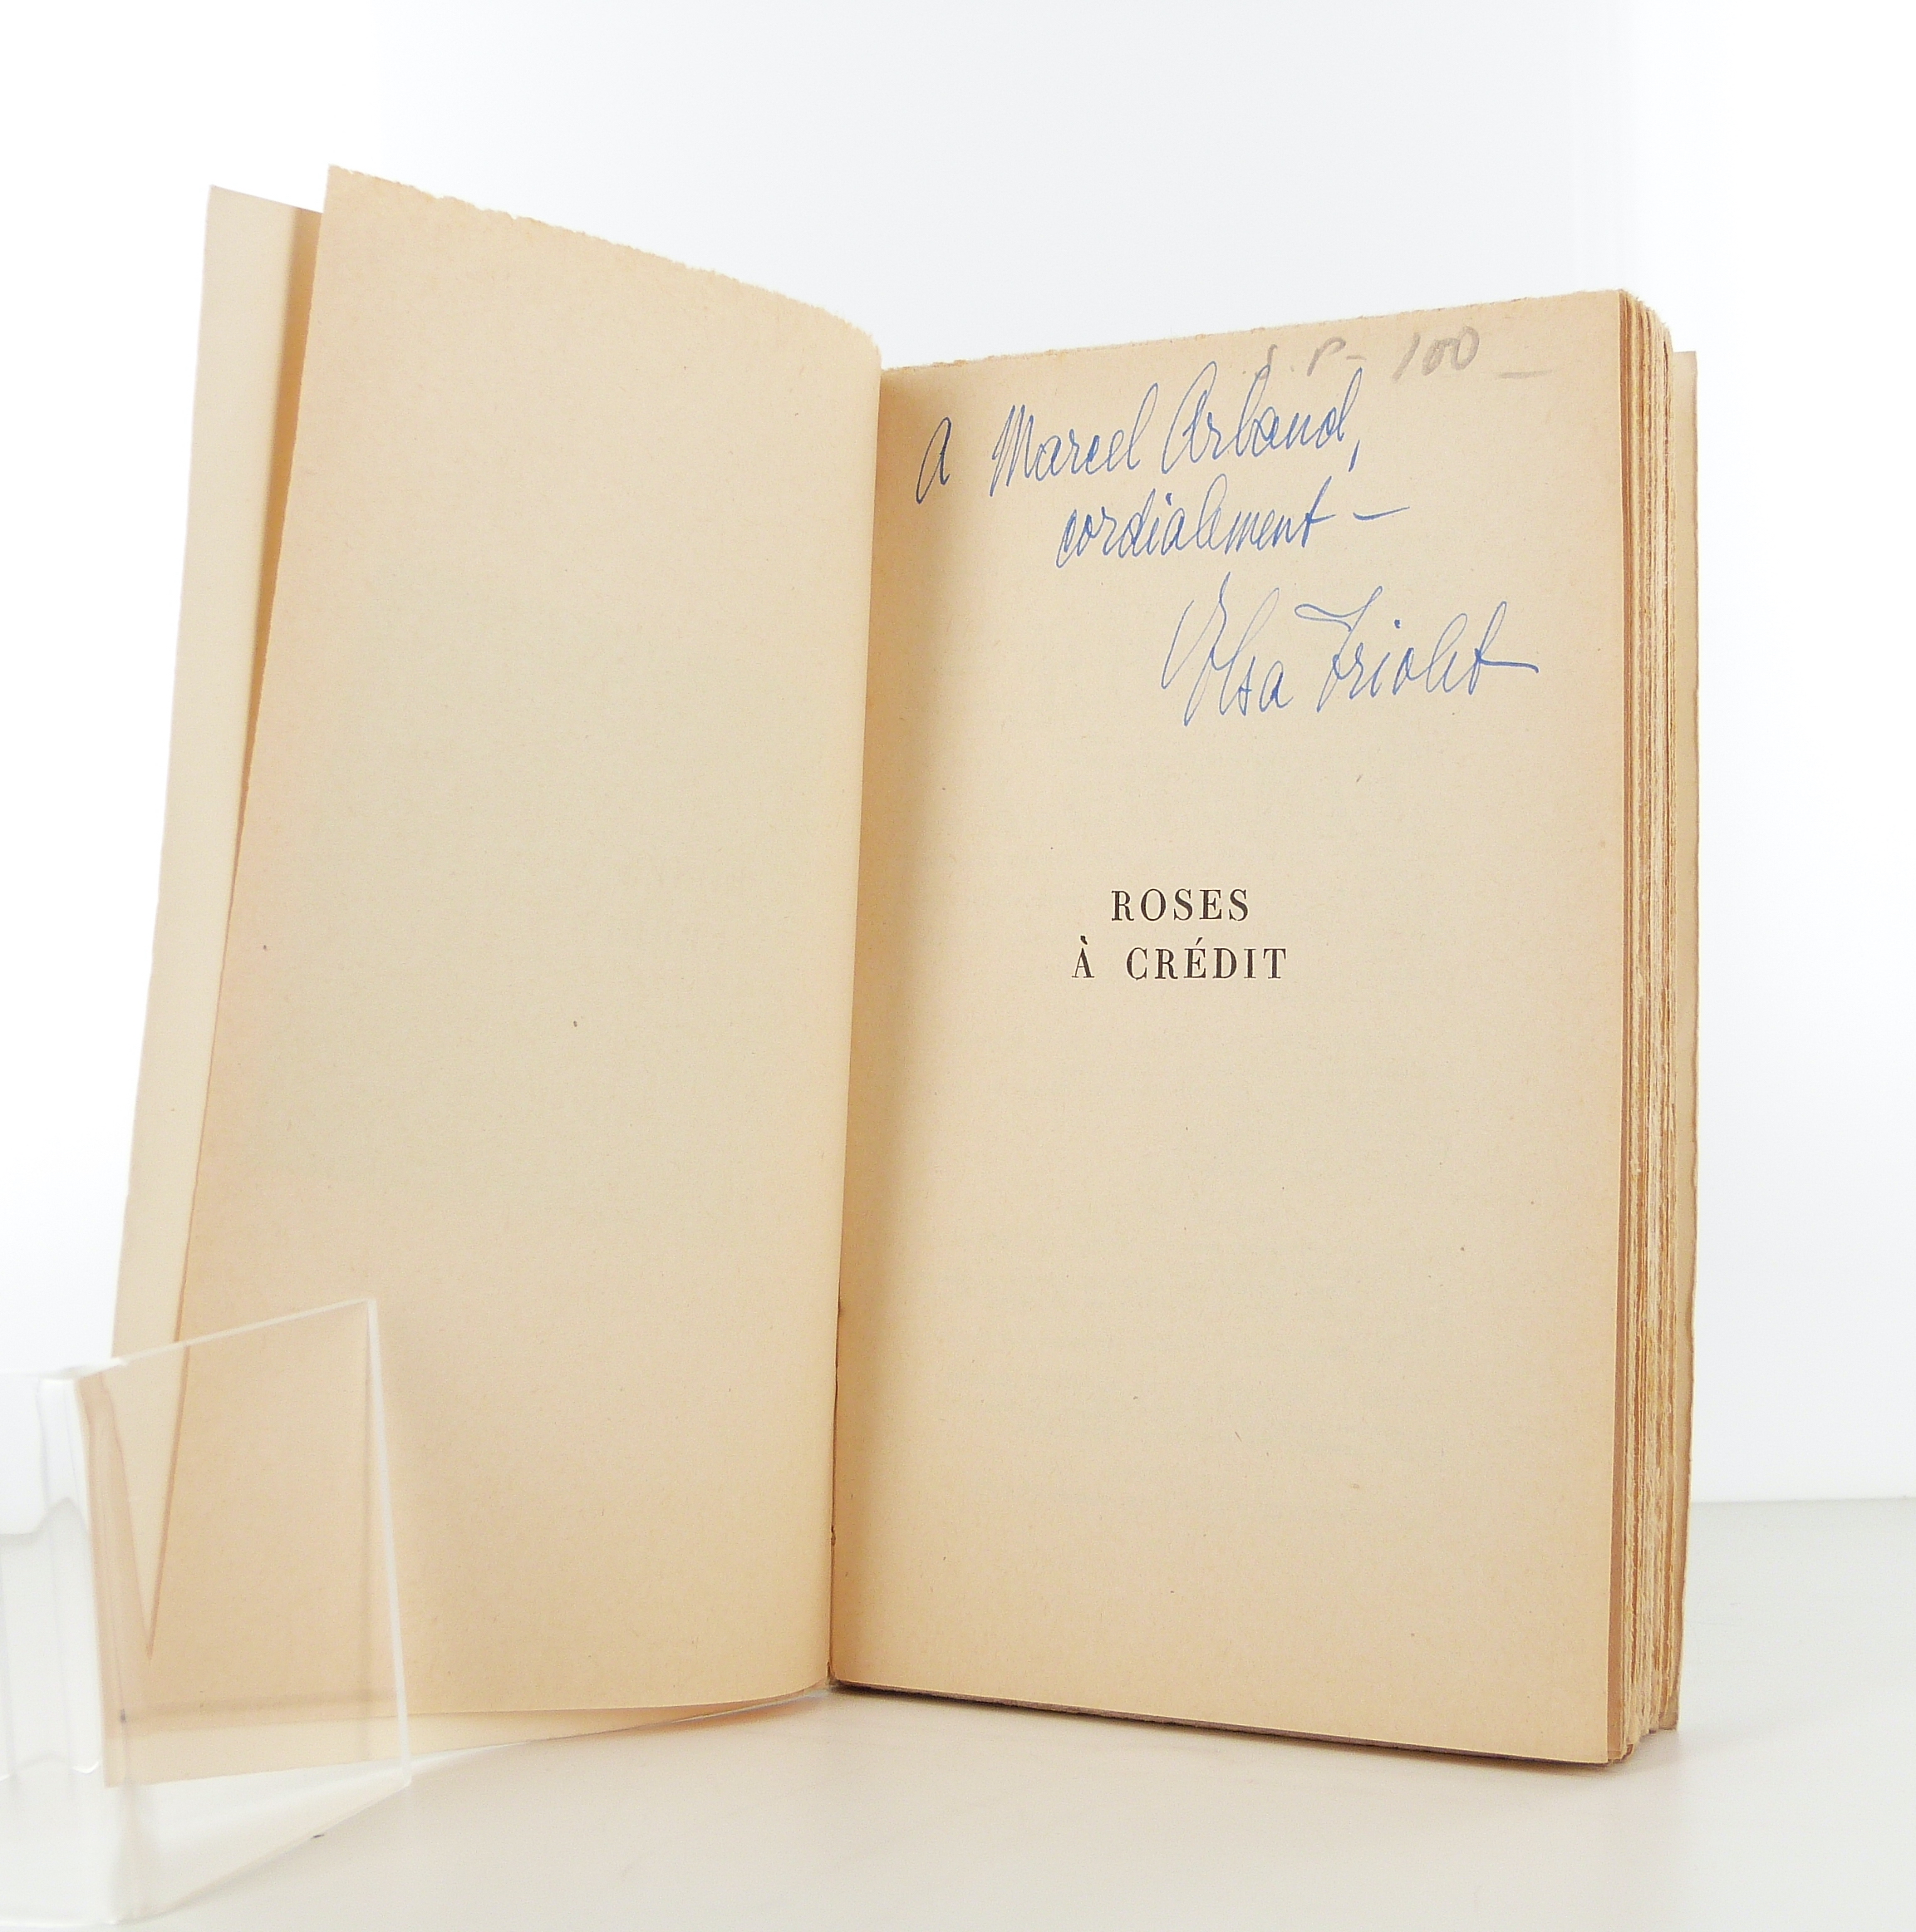 S.P- 100 _
A Marcel Arbaud,
cordialement –
Elsa Triolet
ROSES
À CRÉDIT